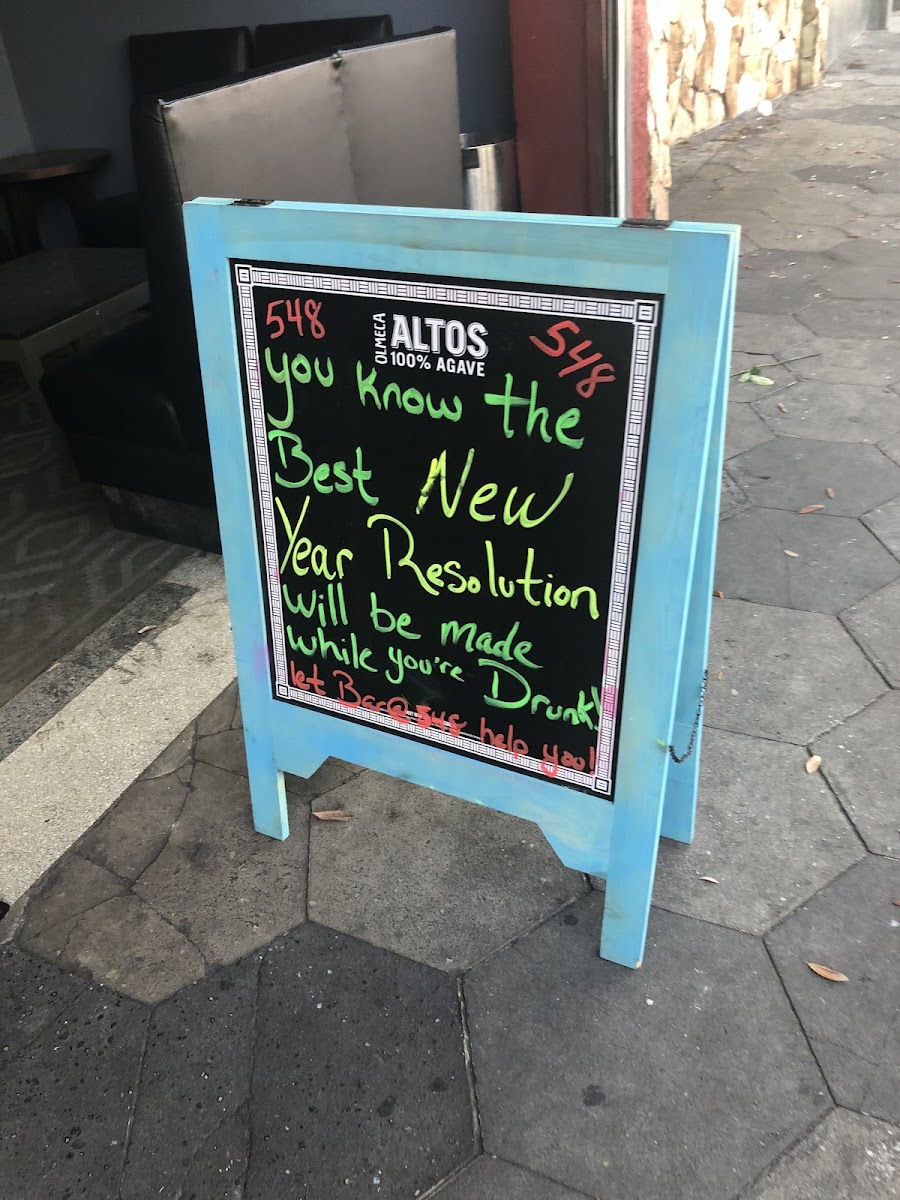 548
OLMECA
ALTOS
100% AGAVE
548
you know the
Best New
Year Resolution
will be made
while you're Drunk!
let Bar@548 help you!